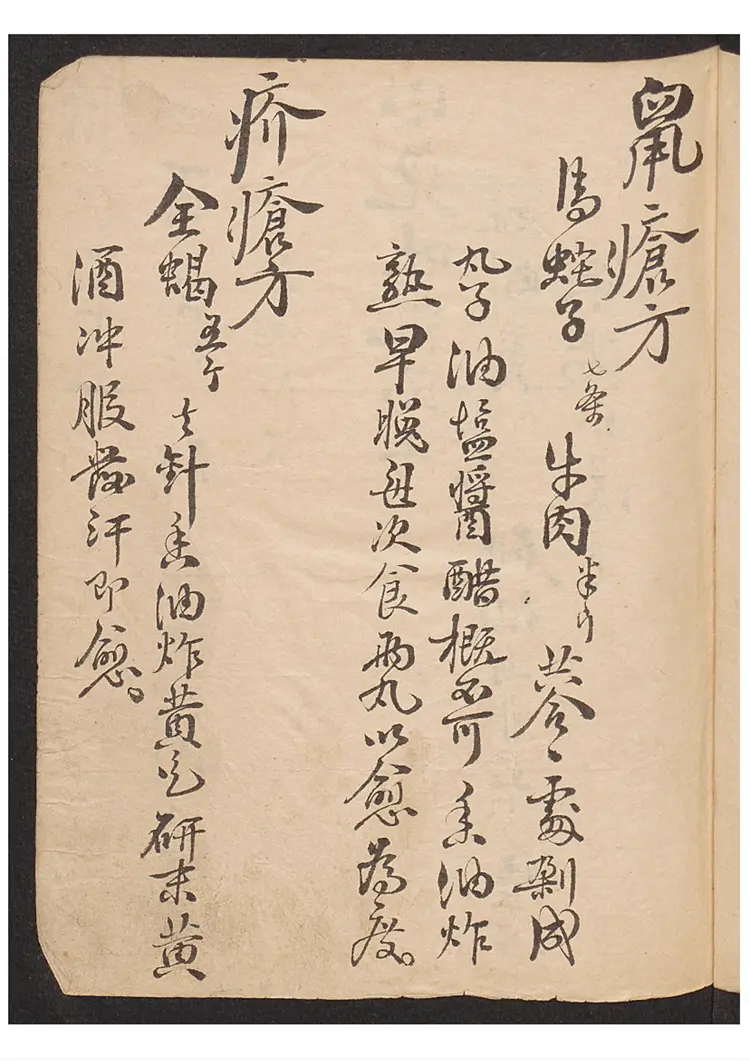 鼠瘡方
馬蛇子七条牛肉半斤共合一處剁成
丸子油塩醬醋概不可香油炸
熟早晚每次食兩丸以愈為度。
疥瘡方
全蝎五个去針香油炸黄色研末黄
酒冲服發汗即愈。